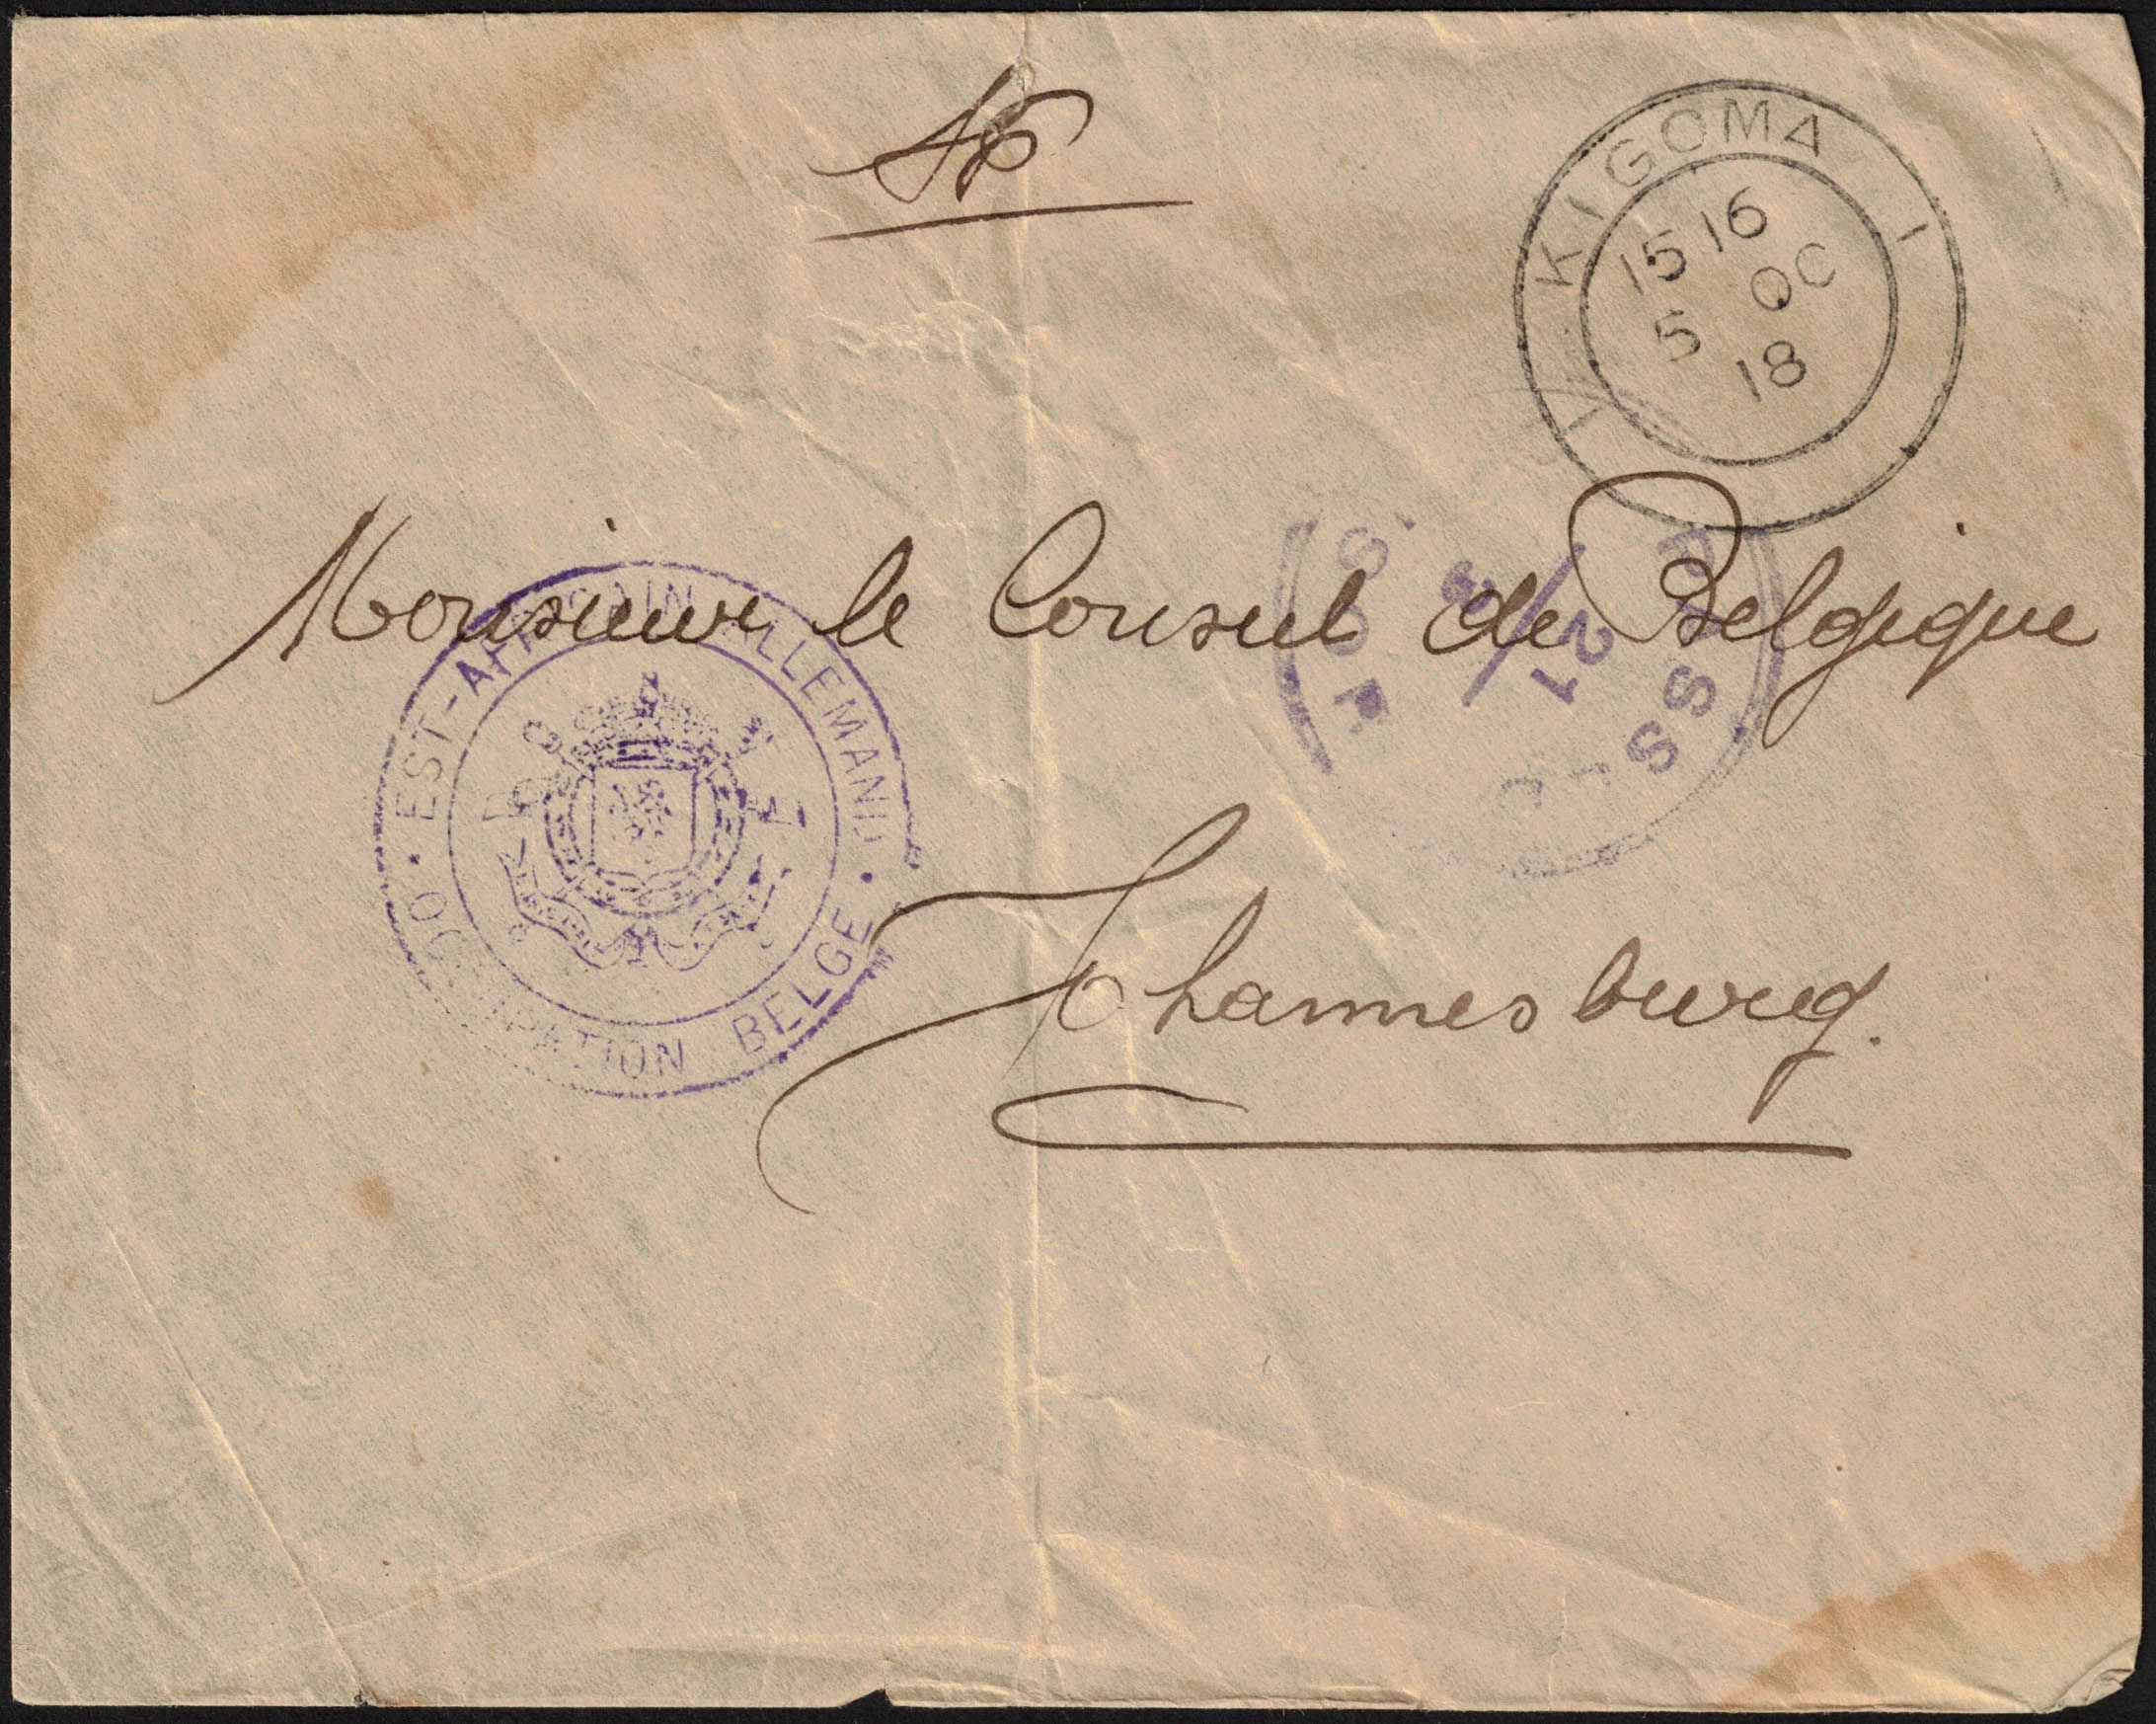 SP
KIGOMA
1
1516
5 OC
18
1
Monsieur le Consul de Belgique
Johannesburg.
EST-AFRICAIN ALLEMAND
OCCUPATION BELGE
21